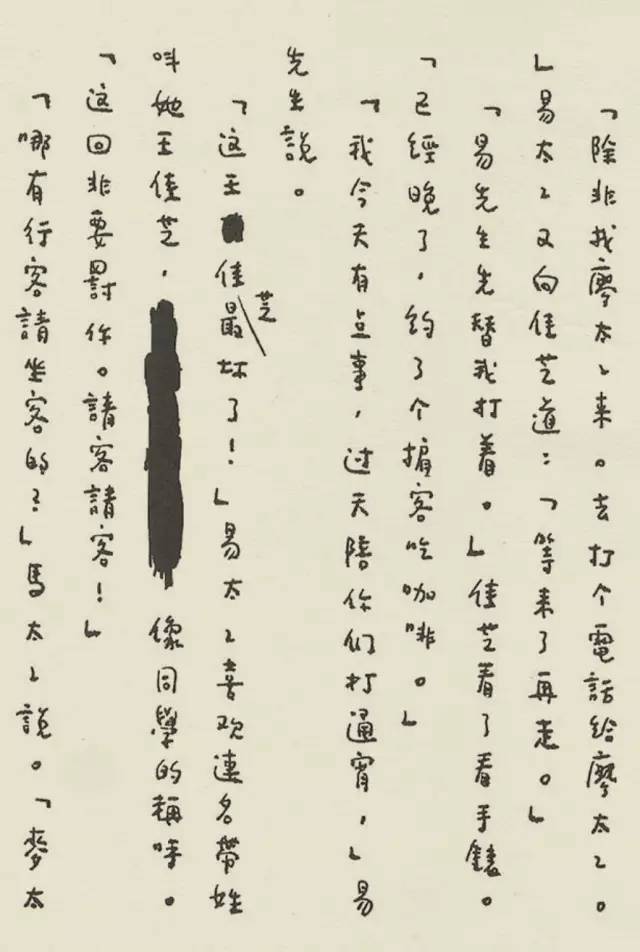 「除非找廖太〻来。去打个電話給廖太〻。
」易太〻又向佳芝道：「等来了再走。」
「易先生先替我打着。」佳芝看了看手錶。
「已經晚了，約了个掮客吃咖啡。」
「我今天有点事，过天陪你们打通宵，」易
先生說。
「这王佳芝最坏了！」易太〻喜欢連名帶姓
叫她王佳芝，像同學的稱呼。
「这回非要罸你。請客請客！」
「哪有行客請坐客的？」馬太〻說。「麥太